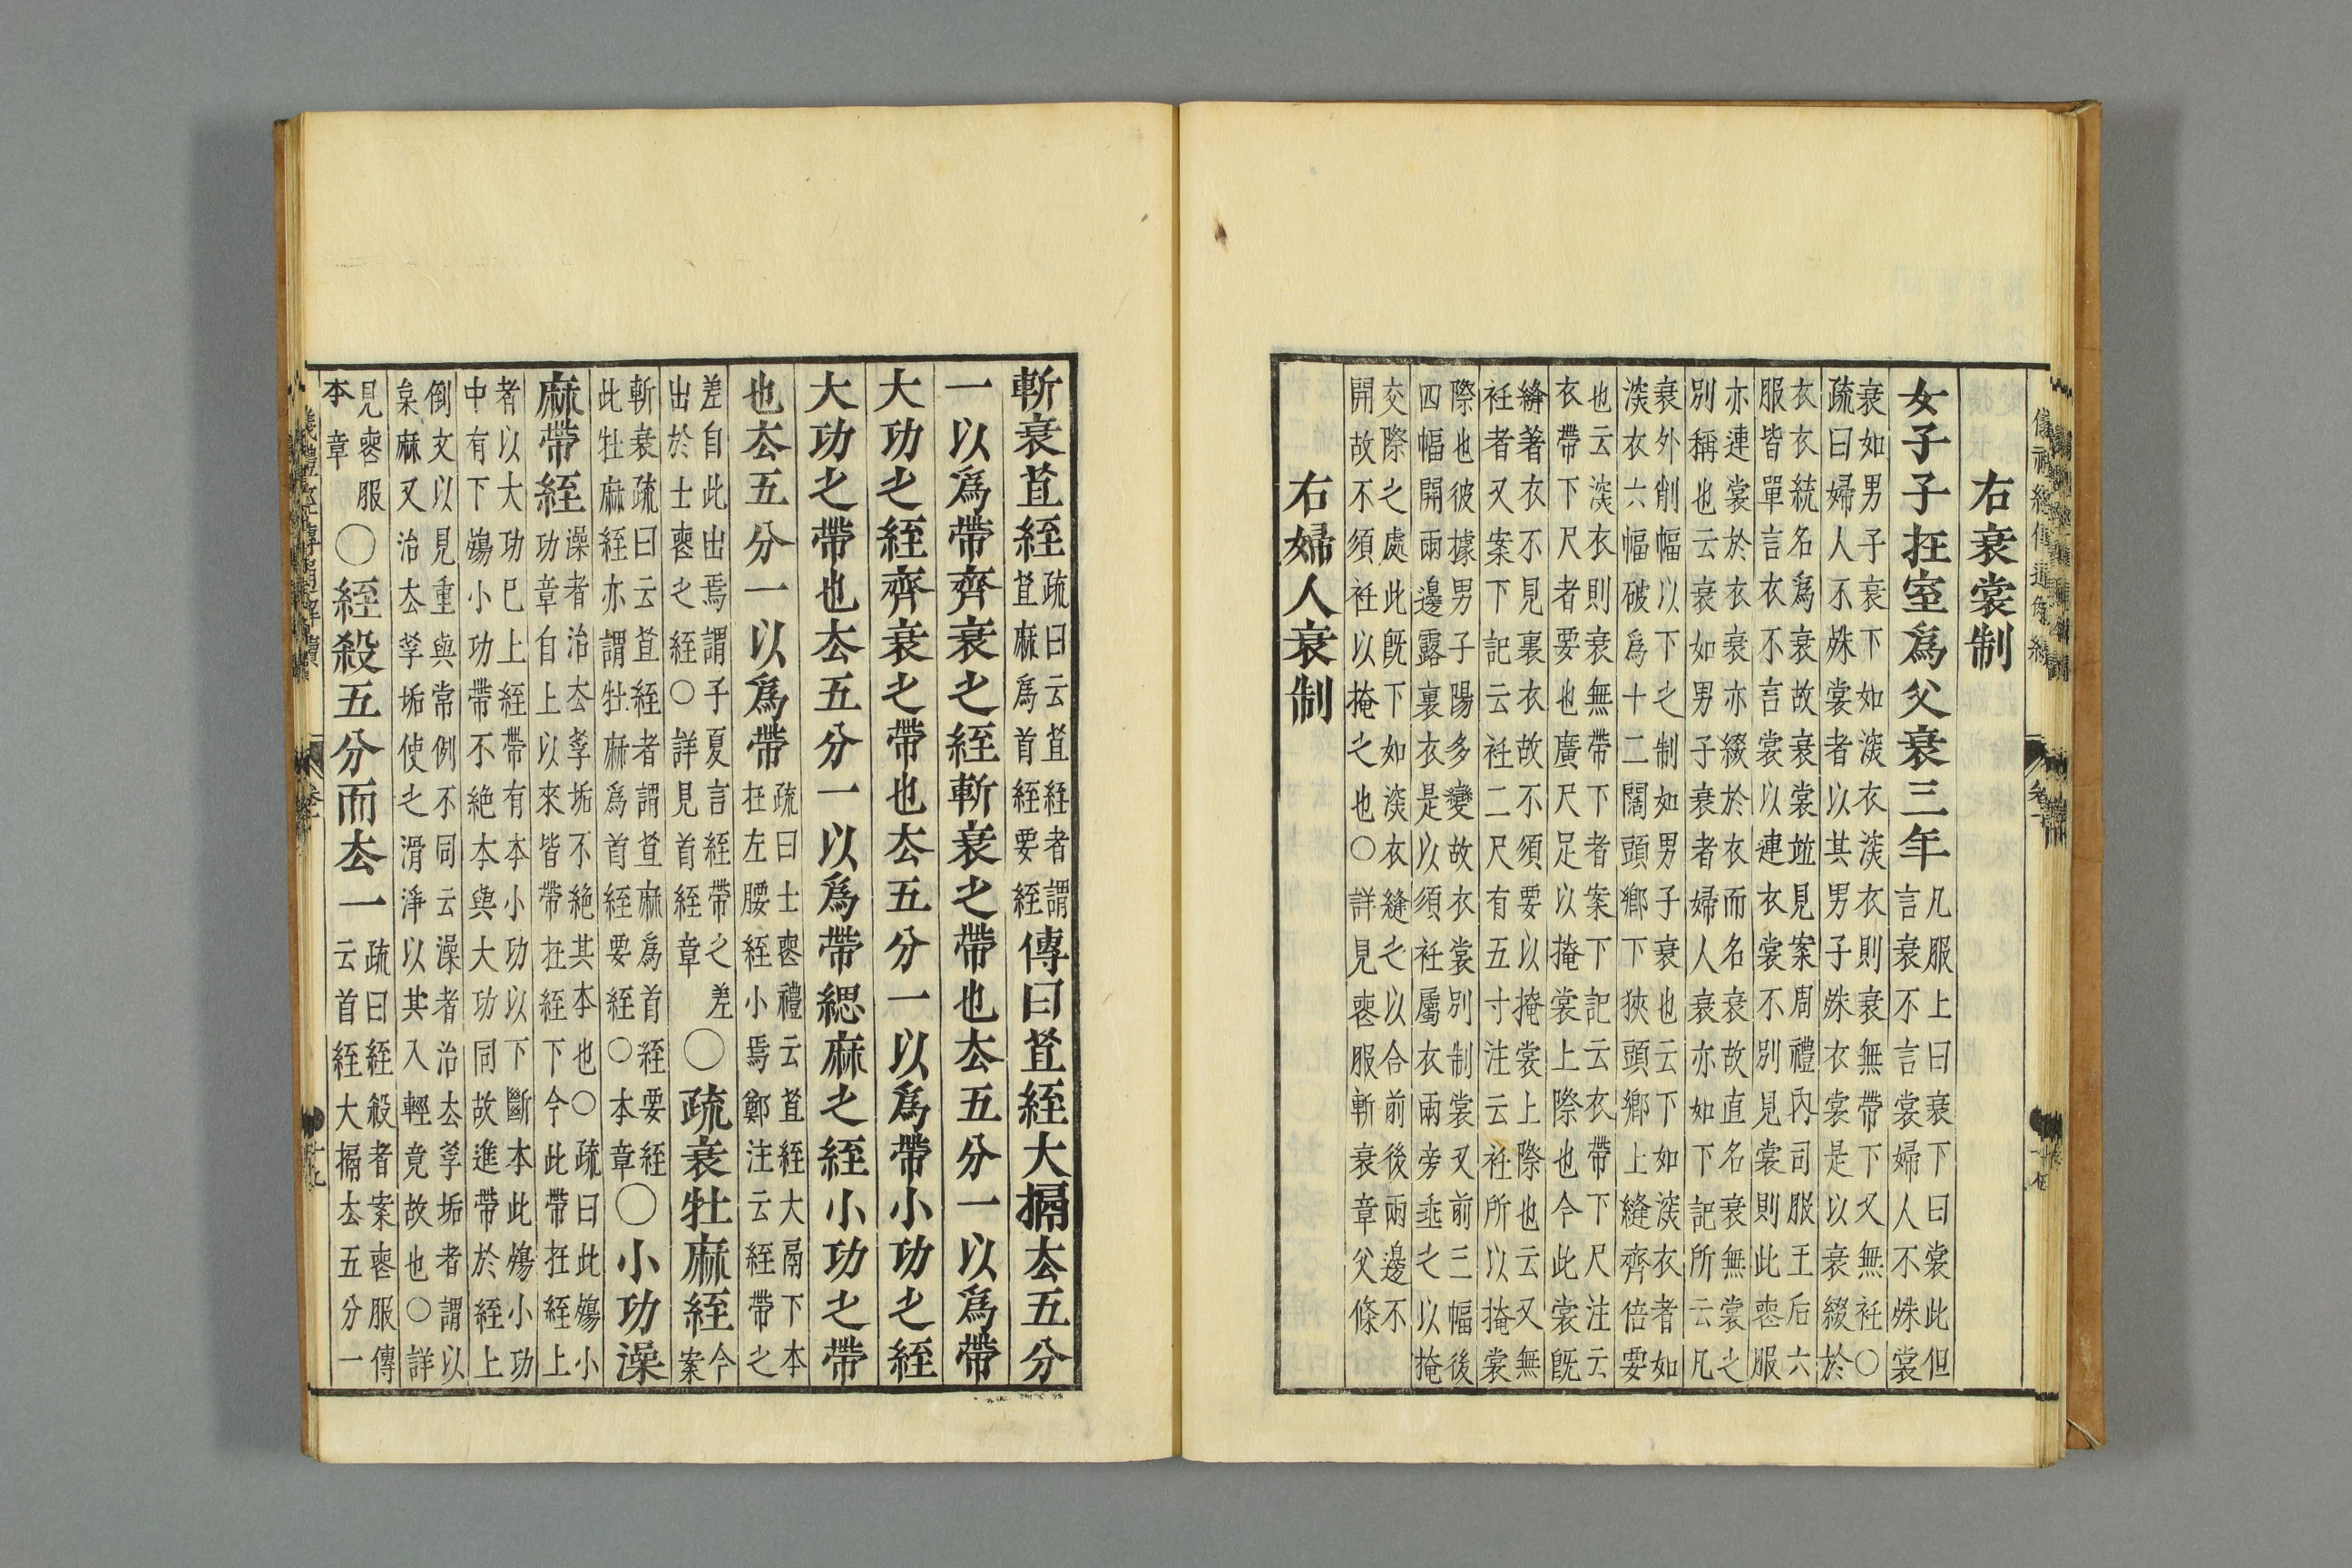 右衰裳制
女子子在室爲父衰三年凡服上曰衰下曰裳此但
言衰不言裳婦人不殊裳
衰如男子衰下如深衣深衣則衰無帶下又無衽○
疏曰婦人不殊裳者以其男子殊衣裳是以衰綴於
衣衣統名爲衰故衰裳竝見案周禮內司服王后六
服皆單言衣不言裳以連衣裳不別見裳則此喪服
亦連裳於衣衰亦綴於衣而名衰故直名衰無裳之
別稱也云衰如男子衰者婦人衰亦如下記所云凡
衰外削幅以下之制如男子衰也云下如深衣者如
深衣六幅破爲十二闊頭鄉下狹頭鄉上縫齊倍要
也云深衣則衰無帶下者案下記云衣帶下尺注云
衣帶下尺者要也廣尺足以掩裳上際也今此裳旣
縫著衣不見裏衣故不須要以掩裳上際也云又無
衽者又案下記云衽二尺有五寸注云衽所以掩裳
際也彼據男子陽多變故衣裳別制裳又前三幅後
四幅開兩邊露裏衣是以須衽屬衣兩旁垂之以掩
交際之處此旣下如深衣縫之以合前後兩邊不
開故不須衽以掩之也○詳見喪服斬衰章父條
右婦人衰制
斬衰苴絰疏曰云苴絰者謂
苴麻爲首絰要絰
傳曰苴絰大搹去五分
一以爲帶齊衰之絰斬衰之帶也去五分一以爲帶
大功之絰齊衰之帶也去五分一以爲帶小功之絰
大功之帶也去五分一以爲帶緦麻之絰小功之帶
也去五分一以爲帶疏曰士喪禮云苴絰大鬲下本
在左腰絰小焉鄭注云絰帶之
差自此出焉謂子夏言絰帶之差
出於士喪之絰○詳見首絰章
○疏衰牡麻絰今
案
斬衰疏曰云苴絰者謂苴麻爲首絰要絰
此牡麻絰亦謂牡麻爲首絰要絰○本章
○小功澡
麻帶絰澡者治去莩垢不絶其本也○疏曰此殤小
功章自上以來皆帶在絰下今此帶在絰上
者以大功已上絰帶有本小功以下斷本此殤小功
中有下殤小功帶不絶本與大功同故進帶於絰上
倒文以見重與常例不同云澡者治去莩垢者謂以
枲麻又治去莩垢使之滑淨以其入輕竟故也○詳
見喪服
本章
○絰殺五分而去一疏曰絰殺者案喪服傳
云首絰大搹去五分一